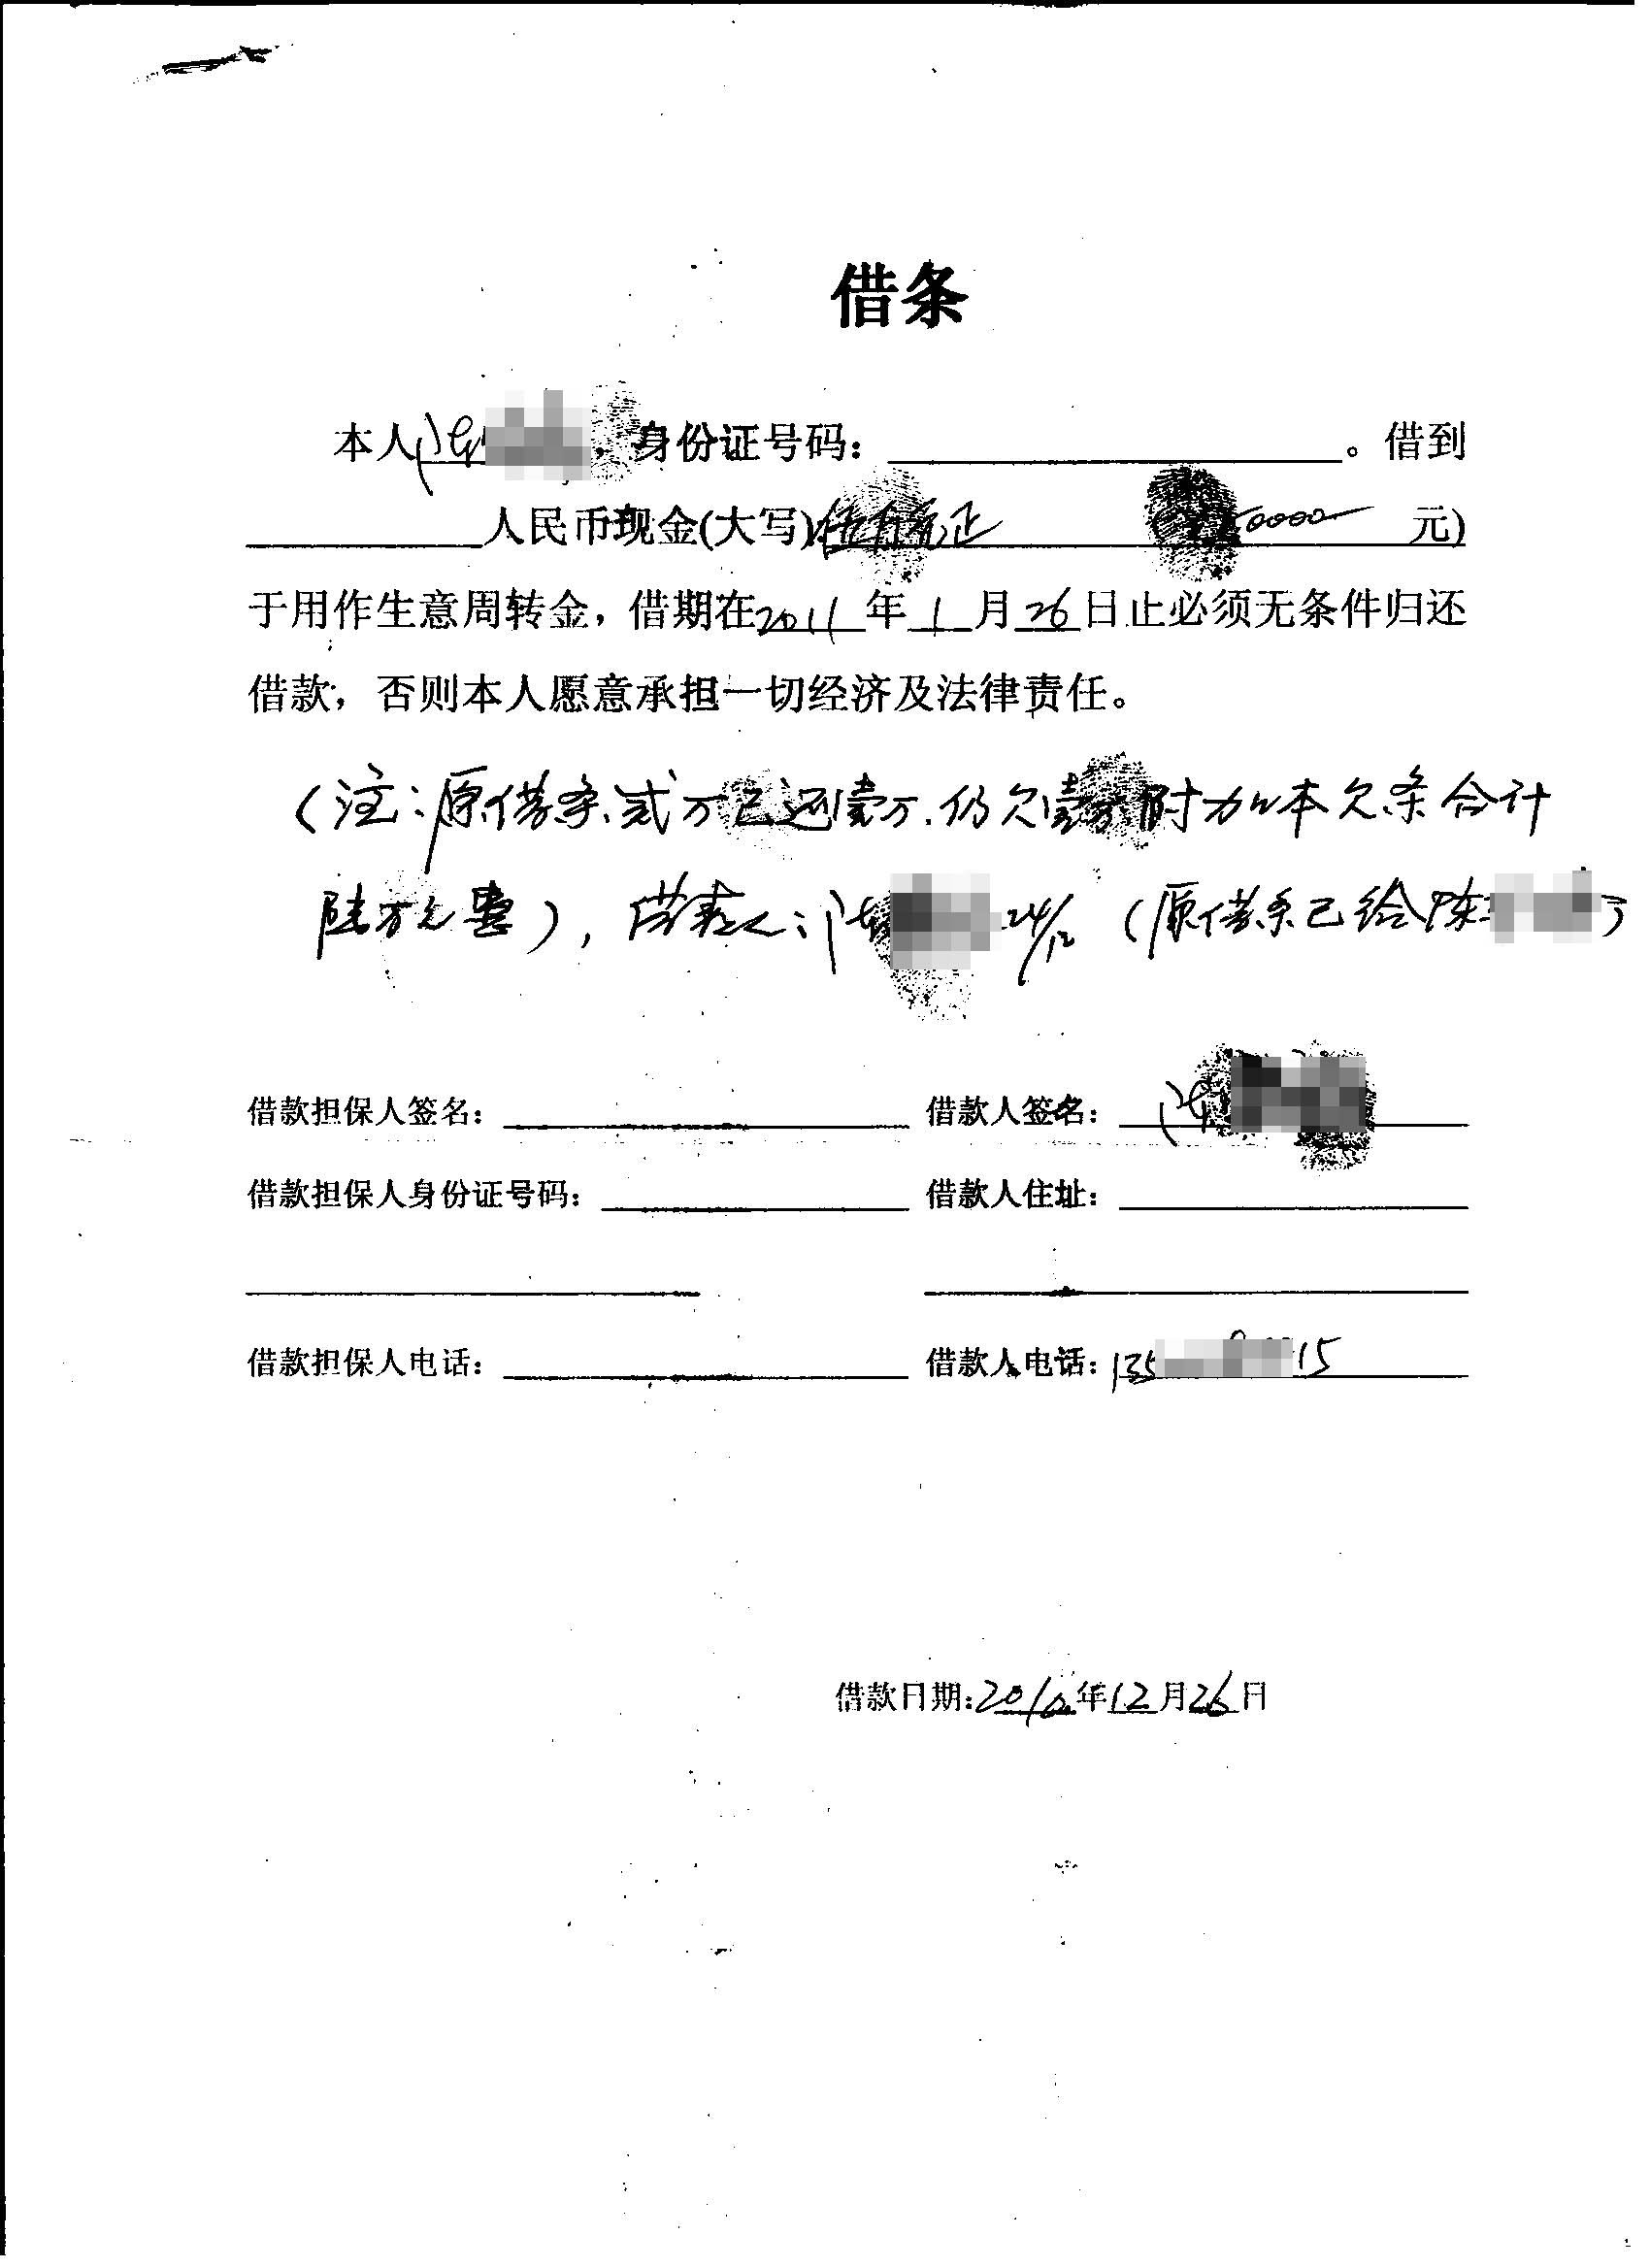 借条
本人 身份证号码： 。借到
人民币现金(大写)伍万元正 50000 元)
于用作生意周转金，借期在2011年1月26日止必须无条件归还
借款，否则本人愿意承担一切经济及法律责任。
(注：原借条贰万已还壹万.仍欠壹万附加本欠条合计
陆万元整)，借款人： 24/12 (原借条已给陈
借款担保人签名： 借款人签名：
借款担保人身份证号码： 借款人住址：
借款担保人电话： 借款人电话：135 15
借款日期：2010年12月26日